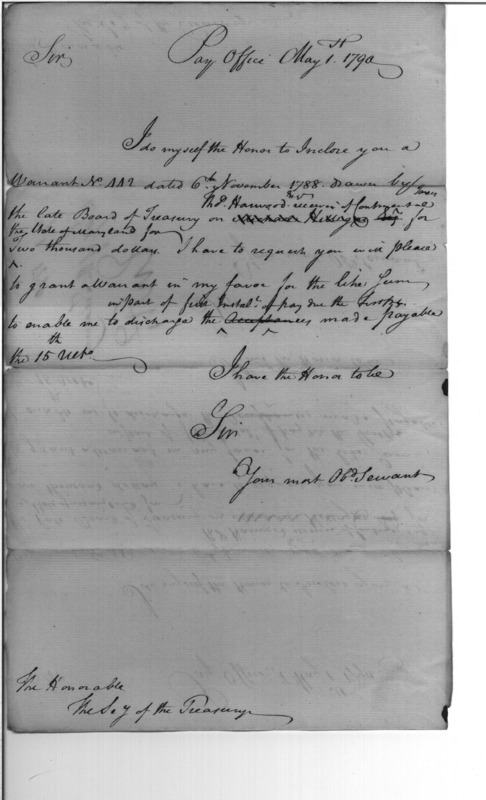 Sir
Pay Office May 1st. 1790
I do myself the Honor to Inclose you a
Warrant No 442 dated 6th November 1788 drawn by
Harwood receiver of Continental
the late Board of Treasury on for
the State of Maryland for
Two thousand dollars. I have to request you will please
to grant a Warrant in my favor for the like Sum
in part of first Instalt. of pay due the
to enable me to discharge the Acceptances made payable
the 15th Ulto.
I have the Honor to be
Sir
Your most Obd. Servant
The Honorable
The Sey of the Treasury